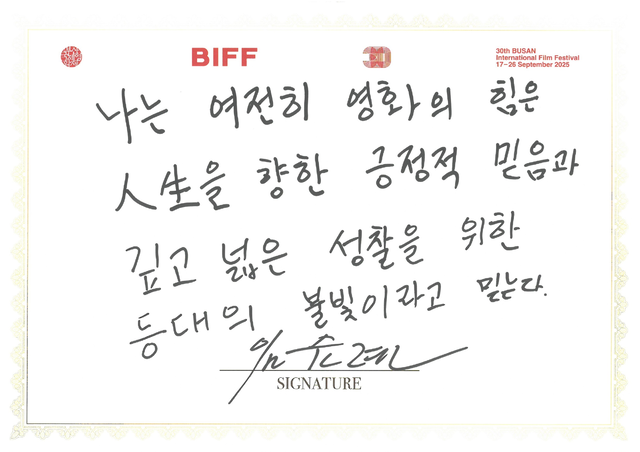 BIFF
30
30th BUSAN
International Film Festival
17–26 September 2025
나는 여전히 영화의 힘은
人生을 향한 긍정적 믿음과
깊고 넓은 성찰을 위한
등대의 불빛이라고 믿는다.
임순례
SIGNATURE